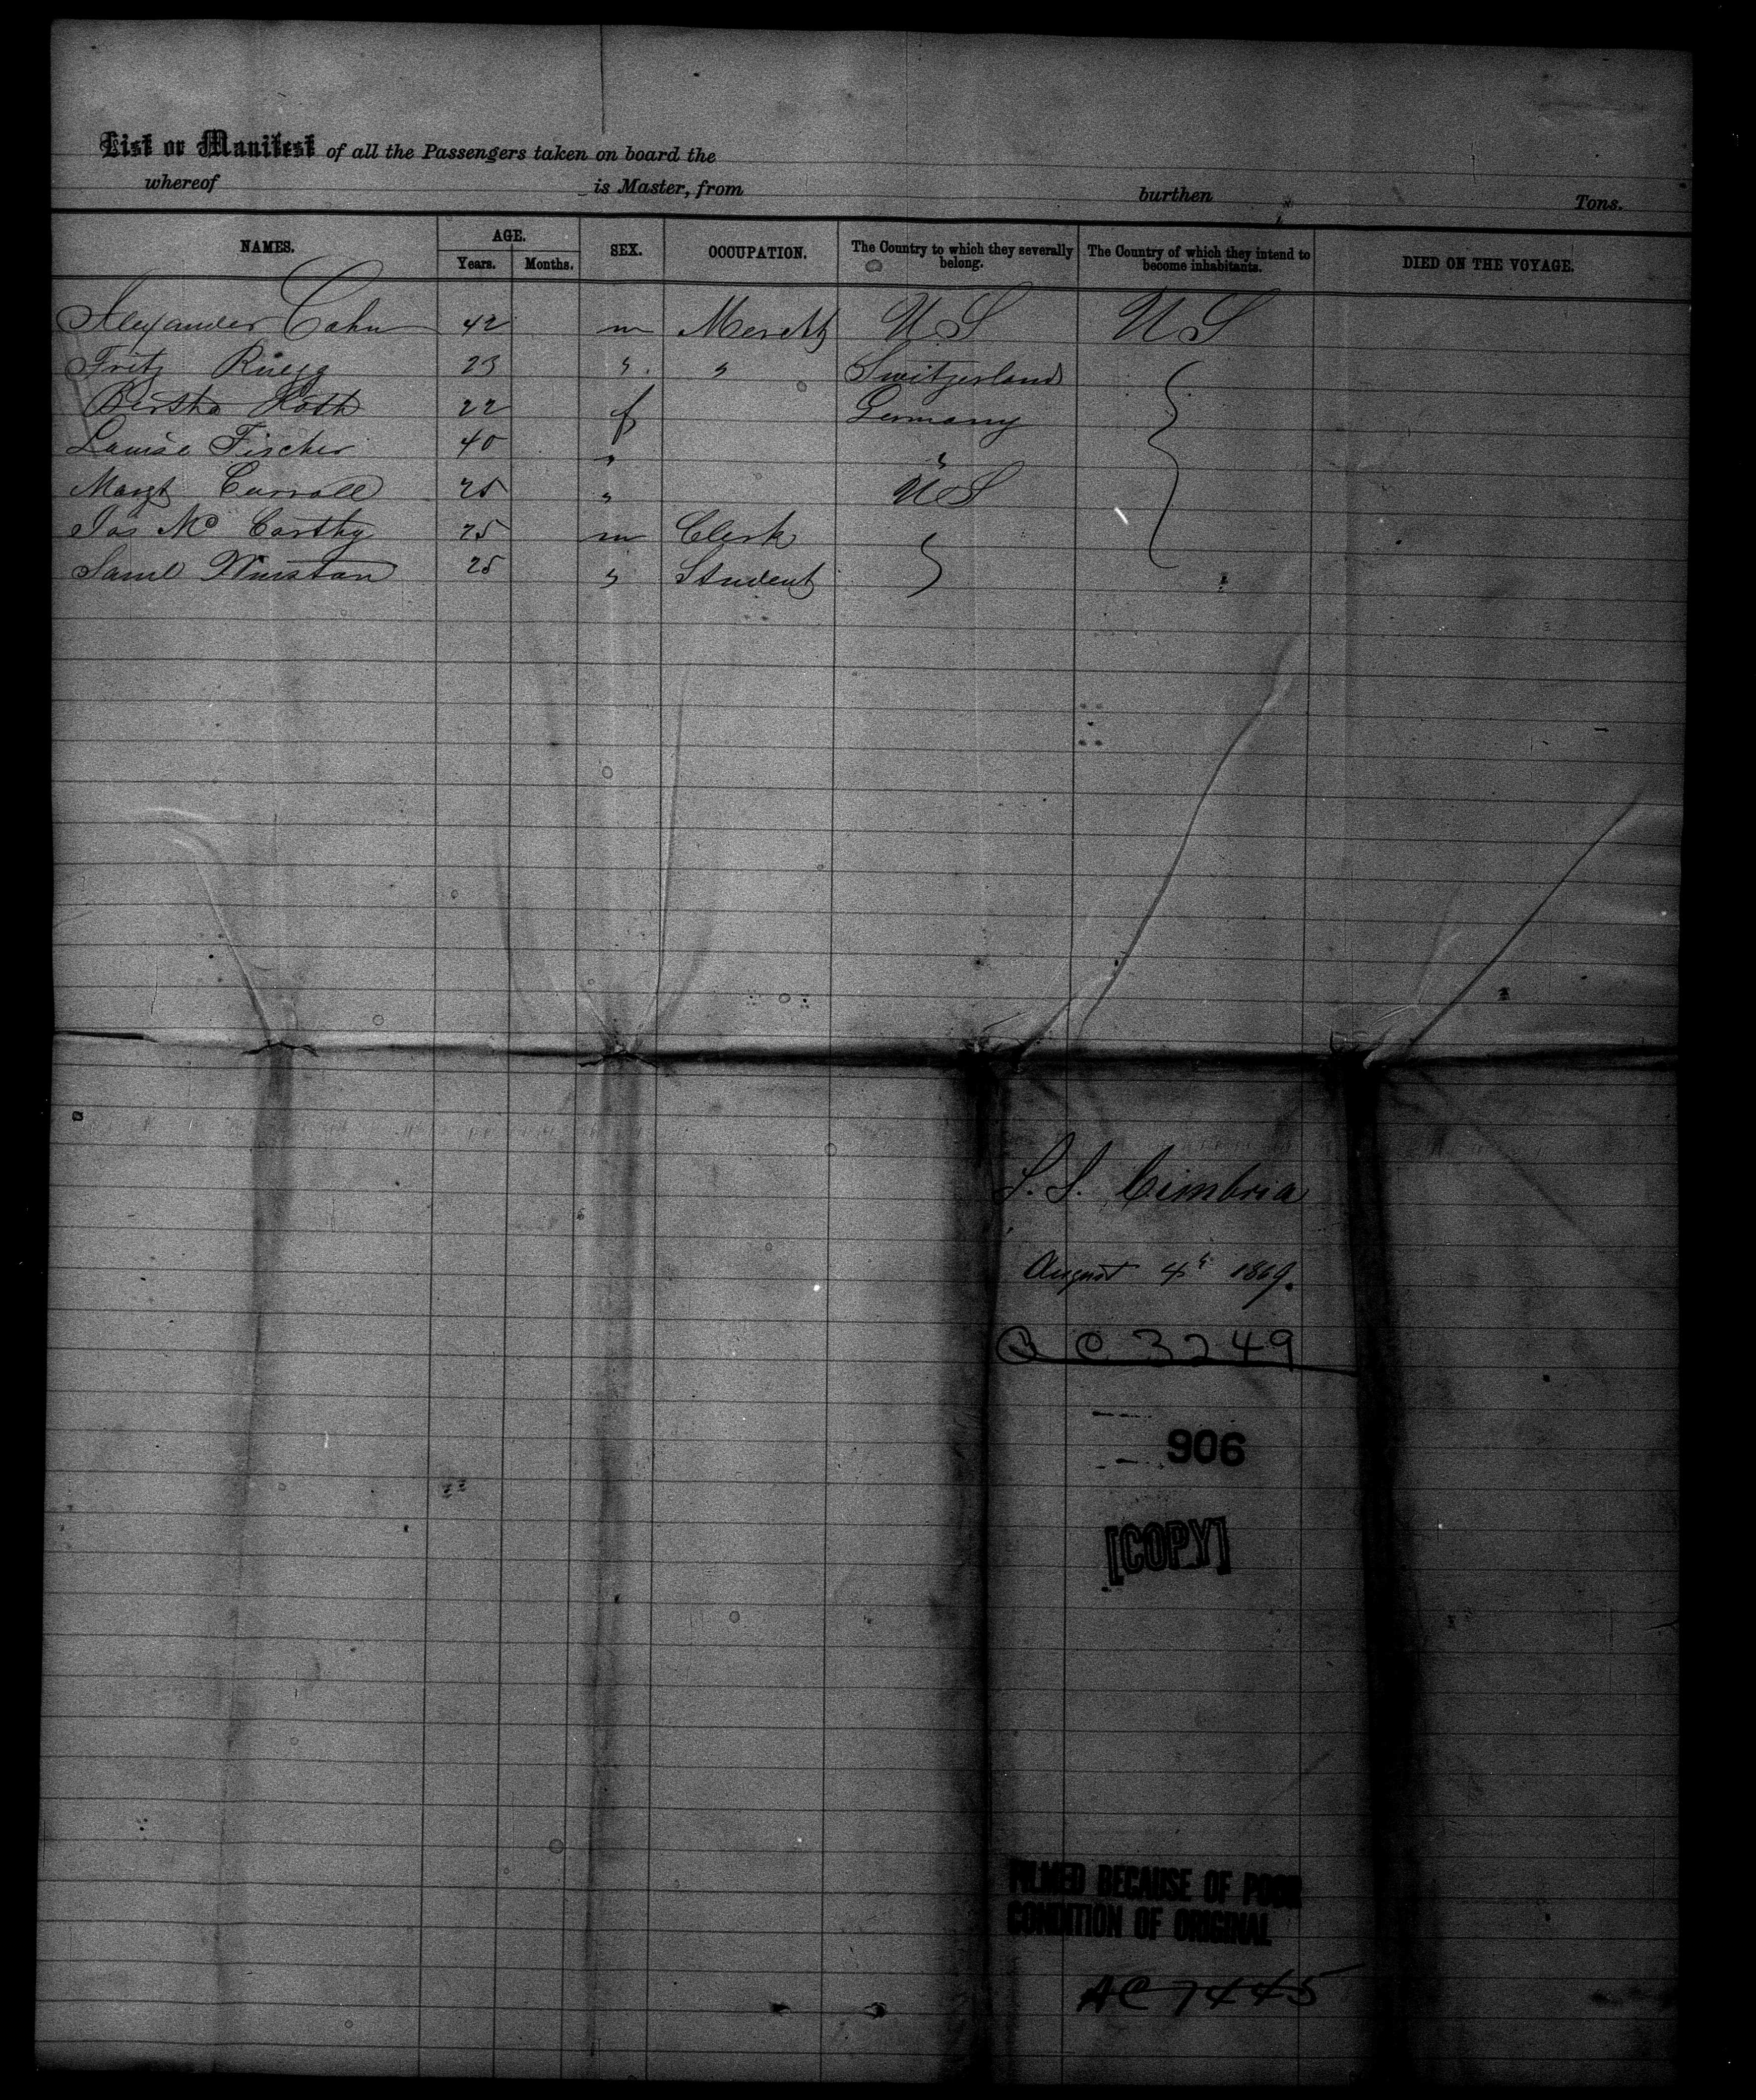 List or Manifest of all the Passengers taken on board the
whereof is Master, from burthen Tons.
NAMES. AGE. SEX. OCCUPATION. The Country to which they severally belong. The Country of which they intend to become inhabitants. DIED ON THE VOYAGE.
Years. Months.
Alexander Cohn 42 m Merchts U S U S
Fritz Rüegg 23 " " Switzerland
Bertha Roth 22 f Germany
Louise Fischer 40 " "
Margt Carroll 25 " U S
Jas Mc Carthy 25 m Clerk
Saml Winston 25 " Student
S. S. Cimbria
August 4th 1869.
C 3249
906
[COPY]
FILMED BECAUSE OF POOR
CONDITION OF ORIGINAL
AC 7445